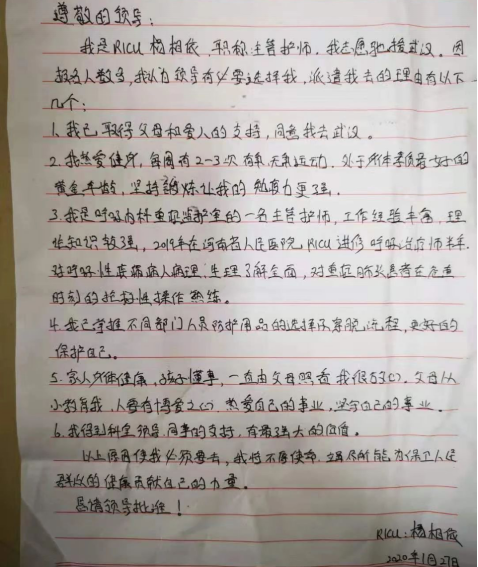 尊敬的领导：
我是RICU 杨相依，职称主管护师，我志愿驰援武汉。因
报名人数多，我认为领导有必要选择我，派遣我去的理由有以下
几个：
1.我已取得父母和爱人的支持，同意我去武汉。
2.我热爱健身，每周有2-3次有氧、无氧运动，处于身体素质最好的
黄金年龄，坚持锻炼让我的免疫力更强。
3.我是呼吸内科重症监护室的一名主管护师，工作经验丰富，理
论知识较强，2019年在河南省人民医院RICU进修呼吸治疗师半年，
对呼吸性疾病病人病理、生理了解全面，对重症肺炎患者在危重
时刻的护理性操作熟练。
4.我已掌握不同部门人员防护用品的选择及穿脱流程，更好的
保护自己。
5.家人身体健康，孩子懂事，一直由父母照看我很放心，父母从
小教育我，人要有博爱之心，热爱自己的事业，坚守自己的事业。
6.我得到科室领导、同事的支持，有着强大的后盾。
以上原因使我必须要去，我将不辱使命，竭尽所能为保卫人民
群众的健康贡献自己的力量。
恳请领导批准！
RICU：杨相依
2020年1月27日